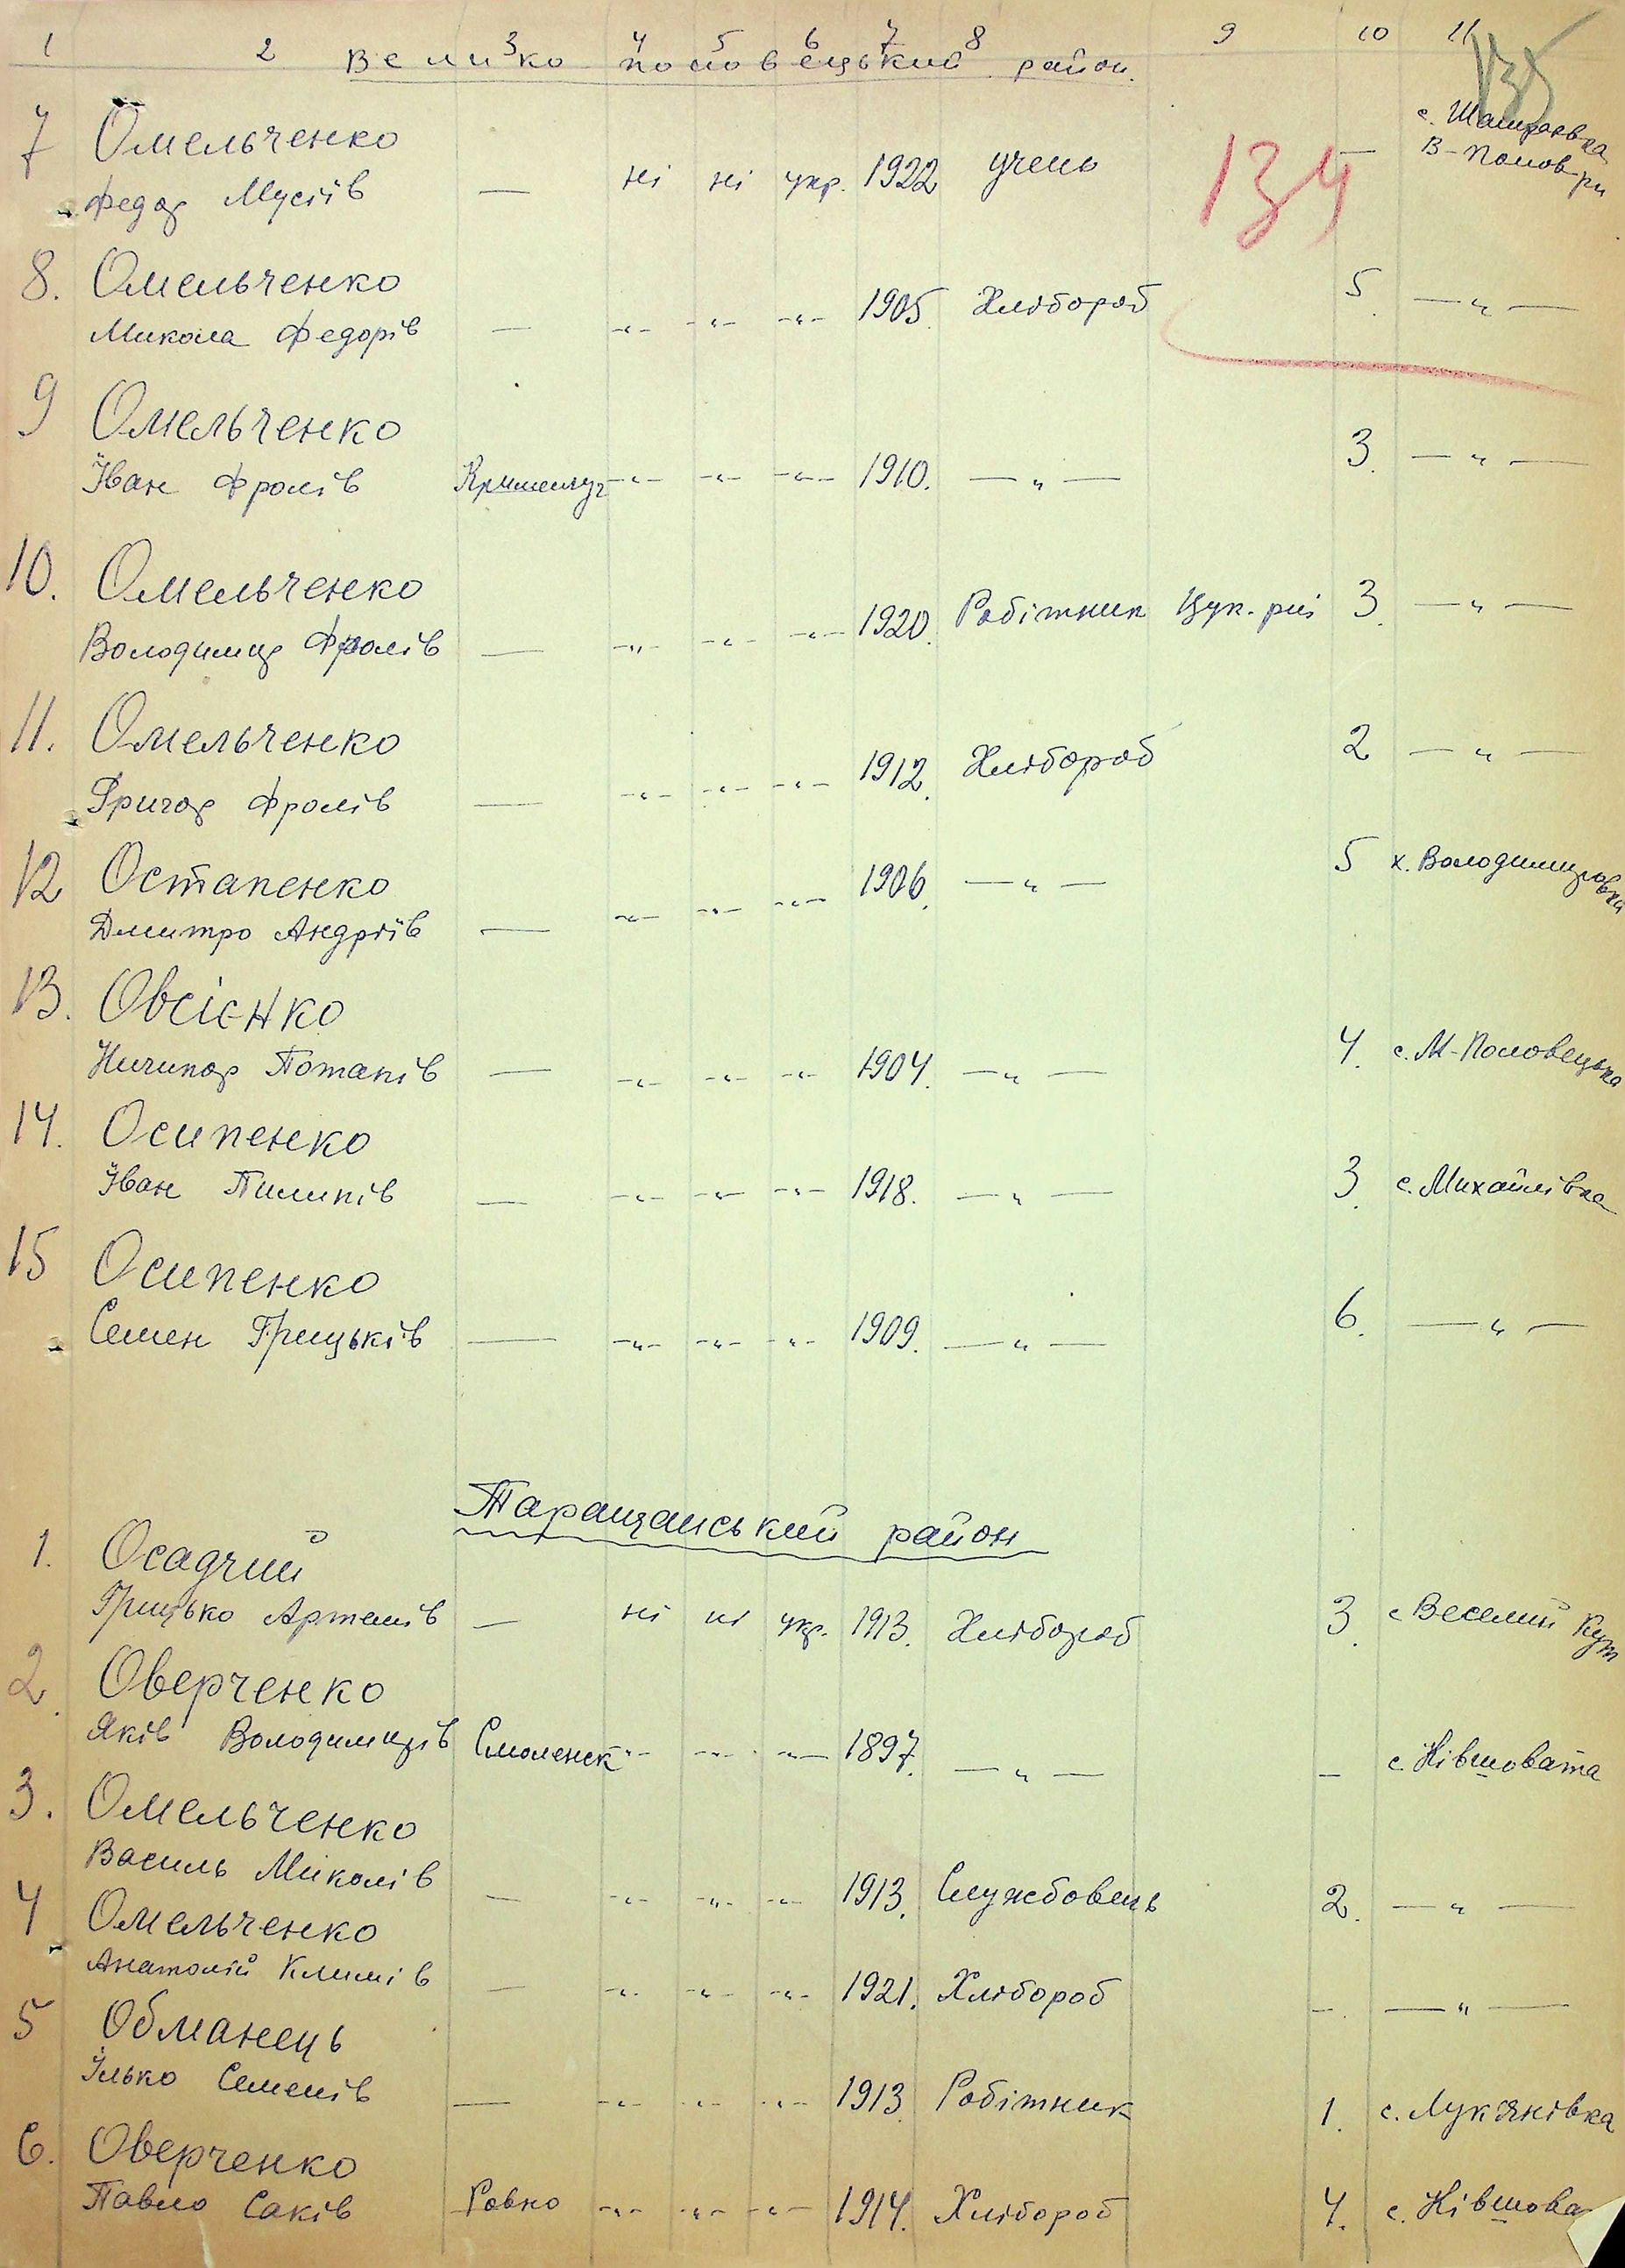 1 2 3 4 5 6 7 8 9 10 11
Велико половецький район.
135
134
7 Омельченко с. Шамраївка
Федор Мусіїв — ні ні укр. 1922 учень — В-Полов. р-н
8. Омельченко
Микола Федорів — -"- -"- -"- 1905. Хлібороб 5. —"—
9 Омельченко
Іван Фролів Крименчуг -"- -"- -"- 1910. —"— 3. —"—
10. Омельченко
Володимир Фролів — -"- -"- -"- 1920. Робітник Цук. 3. —"—
11. Омельченко
Григор Фролів — -"- -"- -"- 1912. Хлібороб 2 —"—
12 Остапенко
Дмитро Андріїв — -"- -"- -"- 1906. —"— 5 х. Володимировка
13. Овсієнко
Ничипор Потапів — -"- -"- -"- 1904. —"— 4. с. М-Половецька
14. Осипенко
Іван Пилипів — -"- -"- -"- 1918. —"— 3. с. Михайлівка
15 Осипенко
Семен Грицьків — -"- -"- -"- 1909. —"— 6. —"—
Таращанський район
1. Осадчий
Грицько Артемів — ні ні укр. 1913. Хлібороб 3. с Веселий Кут
2. Оверченко
Яків Володимирів Смоленск -"- -"- -"- 1897. —"— — с. Ківшовата
3. Омельченко
Василь Миколів — -"- -"- -"- 1913. Службовець 2. —"—
4 Омельченко
Анатолій Климів — -"- -"- -"- 1921. Хлібороб — —"—
5 Обманець
Ілько Семенів — -"- -"- -"- 1913 Робітник 1. с. Лук'янівка
6. Оверченко
Павло Саків Ровно -"- -"- -"- 1914. Хлібороб 4. с. Ківшова